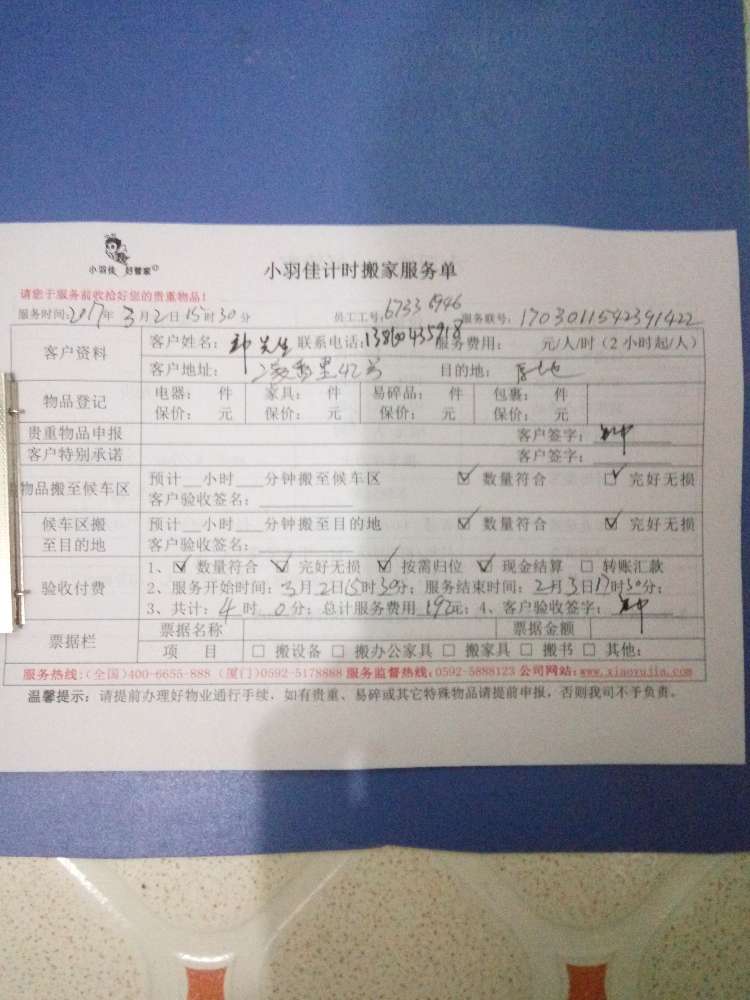 小羽佳 好管家
小羽佳计时搬家服务单
请您于服务前收拾好您的贵重物品!
服务时间:2017年3月2日15时30分 员工工号:6733 6946 服务联号:1703011542391422
客户资料
客户姓名: 先生 联系电话: 服务费用: 元/人/时(2小时起/人)
客户地址: 42号 目的地:
物品登记
电器: 件 家具: 件 易碎品: 件 包裹: 件
保价: 元 保价: 元 保价: 元 保价: 元
贵重物品申报 客户签字:
客户特别承诺 客户签字:
物品搬至候车区
预计__小时___分钟搬至候车区 ☑ 数量符合 ☑ 完好无损
客户验收签名:
候车区搬至目的地
预计__小时___分钟搬至目的地 ☑ 数量符合 ☑ 完好无损
客户验收签名:
验收付费
1、☑ 数量符合 ☑ 完好无损 ☑ 按需归位 ☑ 现金结算 □ 转账汇款
2、服务开始时间:3月2日15时30分;服务结束时间:2月3日17时30分;
3、共计:4时0分;总计服务费用192元;4、客户验收签字:
票据栏
票据名称 票据金额
项 目 □ 搬设备 □ 搬办公家具 □ 搬家具 □ 搬书 □ 其他:
服务热线:(全国)400-6655-888 (厦门)0592-5178888 服务监督热线:0592-5888123 公司网站:www.xiaoyujia.com
温馨提示:请提前办理好物业通行手续,如有贵重、易碎或其它特殊物品请提前申报,否则我司不予负责。